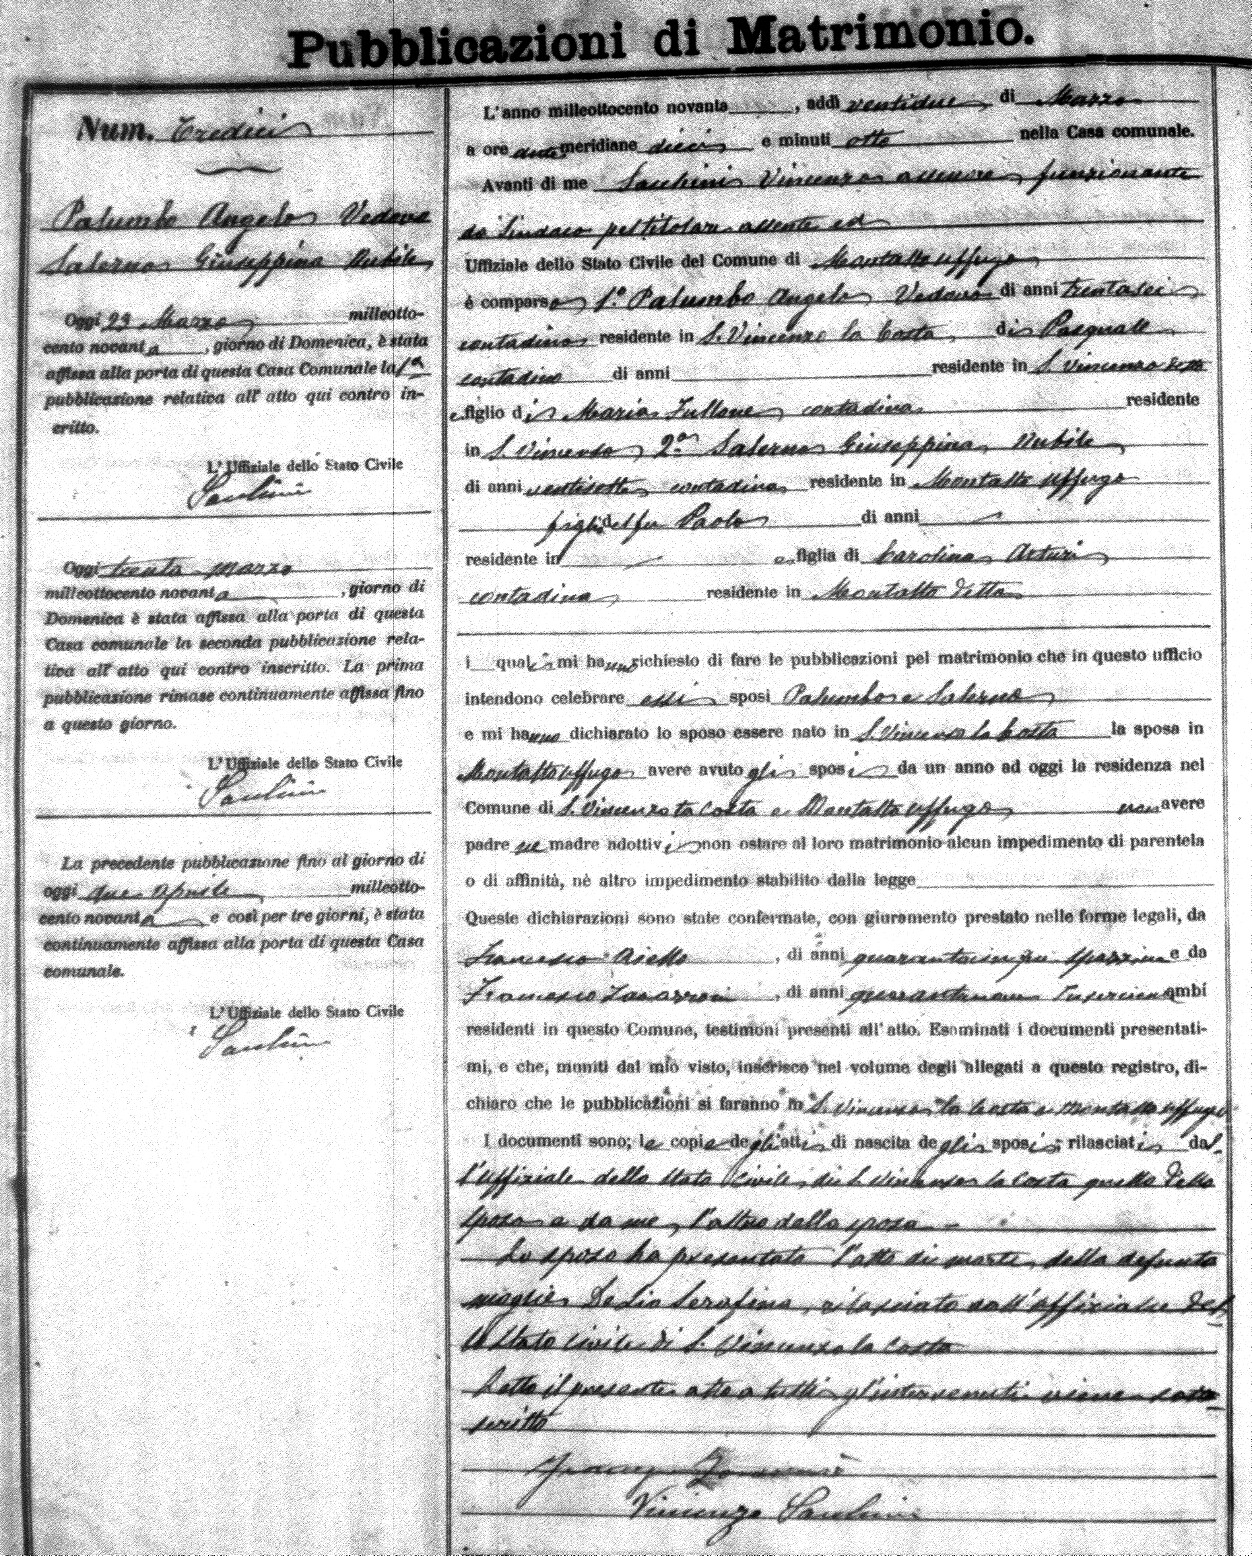 Pubblicazioni di Matrimonio.
Num. Tredici
Palumbo Angelo Vedovo
Salerno Giuseppina Nubile
Oggi 23 Marzo milleotto-
cento novanta, giorno di Domenica, è stata
affissa alla porta di questa Casa Comunale la 1ª
pubblicazione relativa all' atto qui contro in-
critto.
L' Uffiziale dello Stato Civile
Oggi trenta marzo
milleottocento novanta, giorno di
Domenica è stata affissa alla porta di questa
Casa comunale la seconda pubblicazione rela-
tiva all' atto qui contro inscritto. La prima
pubblicazione rimase continuamente affissa fino
a questo giorno.
L' Uffiziale dello Stato Civile
La precedente pubblicazione fino al giorno di
oggi due aprile milleotto-
cento novanta e così per tre giorni, è stata
continuamente affissa alla porta di questa Casa
comunale.
L' Uffiziale dello Stato Civile
L' anno milleottocento novanta, addì ventidue di Marzo
a ore antemeridiane dieci e minuti otto nella Casa comunale.
Avanti di me Vincenzo assessore funzionante
da Sindaco pel titolare assente ed
Uffiziale dello Stato Civile del Comune di Montalto Uffugo
è comparso 1.º Palumbo Angelo Vedovo di anni trentasei
contadino residente in S. Vincenzo la Costa, di Pasquale
contadino di anni residente in S. Vincenzo detto
e figlio di Maria Fullone contadina residente
in S. Vincenzo 2.ª Salerno Giuseppina Nubile
di anni ventisette contadina residente in Montalto Uffugo
figlia del fu Paolo di anni
residente in e figlia di Carolina Arturi
contadina residente in Montalto detto
i quali mi hanno richiesto di fare le pubblicazioni pel matrimonio che in questo ufficio
intendono celebrare essi sposi Palumbo e Salerno
e mi hanno dichiarato lo sposo essere nato in S. Vincenzo la Costa la sposa in
Montalto Uffugo avere avuto gli sposi da un anno ad oggi la residenza nel
Comune di S. Vincenzo la Costa e Montalto Uffugo non avere
padre ne madre adottivi non ostare al loro matrimonio alcun impedimento di parentela
o di affinità, nè altro impedimento stabilito dalla legge
Queste dichiarazioni sono state confermate, con giuramento prestato nelle forme legali, da
Francesco Aiello, di anni quarantacinque spazzino e da
Francesco, di anni ambi
residenti in questo Comune, testimoni presenti all' atto. Esaminati i documenti presentati-
mi, e che, muniti dal mio visto, inserisco nel volume degli allegati a questo registro, di-
chiaro che le pubblicazioni si faranno in S. Vincenzo la Costa e Montalto Uffugo
I documenti sono; le copie degli atti di nascita degli sposi; rilasciati dal-
l'uffiziale dello Stato Civile di S. Vincenzo la Costa quello dello
sposo e da me, l'altro della sposa
Lo sposo ha presentato l'atto di morte della defunta
moglie De Lio Serafina, rilasciato dall'uffiziale del-
lo Stato civile di S. Vincenzo la Costa
Letto il presente atto a tutti gl'intervenuti viene sotto-
scritto
Vincenzo